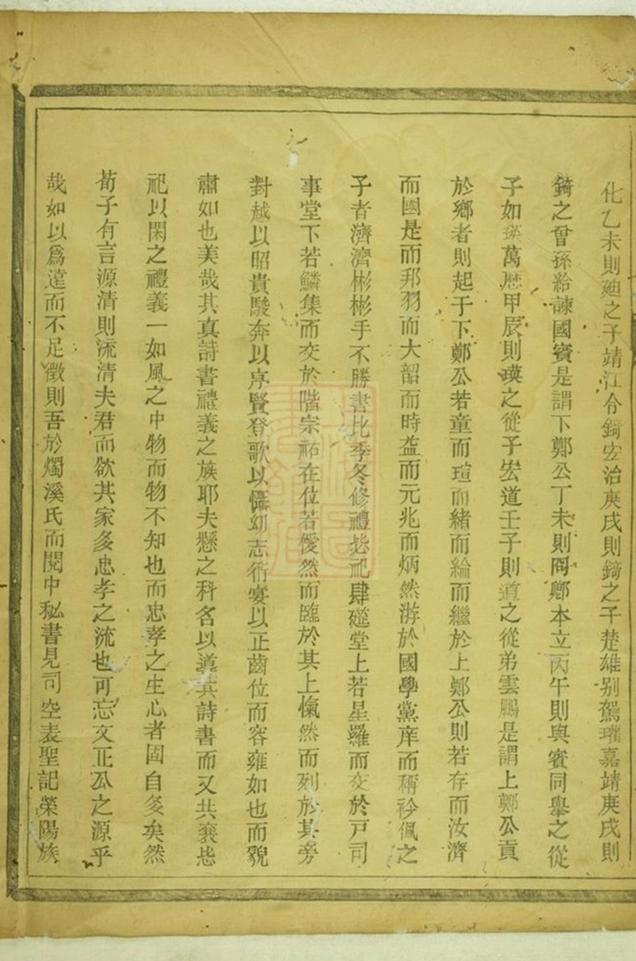 化乙未則廸之子靖江令錡宏治庚戌則錡之子楚雄别駕瓘嘉靖庚戌則
錡之曾孫給諫國賓是謂下鄭公丁未則閰鄉本立丙午則與賓同舉之從
子如瑛萬歷甲辰則瑛之從子宏道壬子則道之從弟雲鵬是謂上鄭公貢
於鄉者則起于下鄭公若童而瑄而緒而綸而繼於上鄭公則若存而汝濟
而國是而邦羽而大韶而時益而元兆而炳然游於國學黨庠而稱衿佩之
子者濟濟彬彬手不勝書比季冬修禮恭祀肆筵堂上若星羅而交於戸司
事堂下若鱗集而交於階宗祏在位若優然而臨於其上愾然而列於其旁
對越以昭貴駿奔以序賢登歌以懾幼志術宴以正齒位而容雍如也而貌
肅如也美哉其真詩書禮義之族耶夫懸之科名以導其詩書而又共襄恭
祀以閑之禮義一如風之中物而物不知也而忠孝之生心者固自多矣然
荀子有言源清則流清夫君而欲其家多忠孝之流也可忘文正公之源乎
哉如以爲遠而不足徵則吾於燭溪氏而閱中秘書見司空表聖記榮陽族